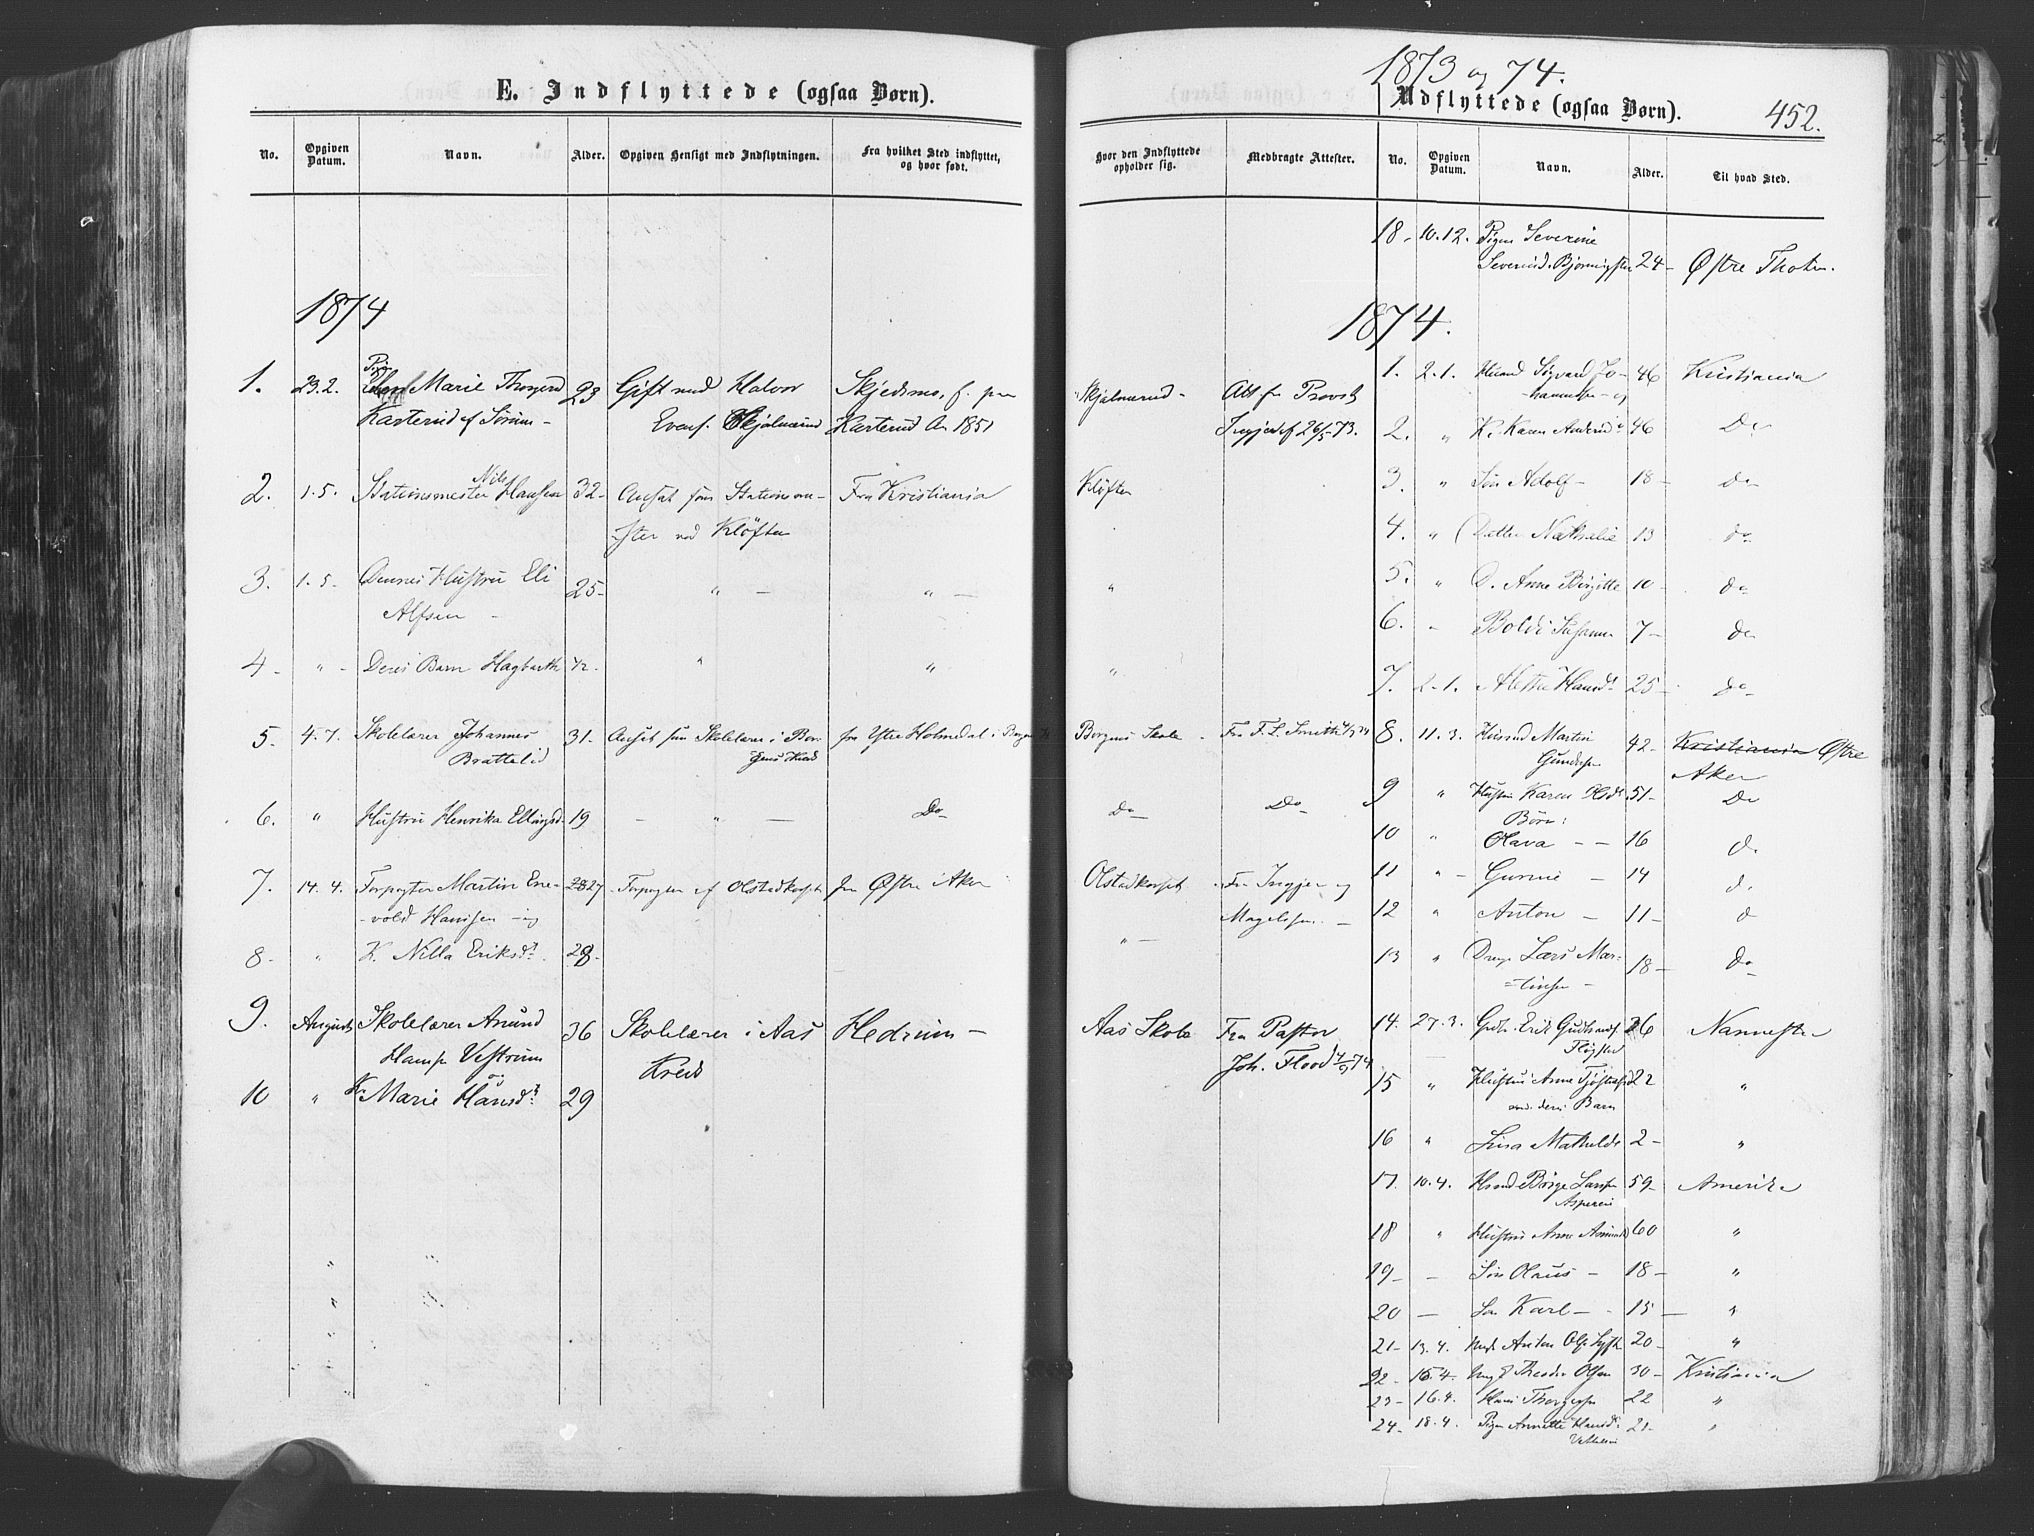 E. Indflyttede (ogsaa Børn).
No. Opgiven Datum. Navn. Alder. Opgiven Hensigt med Indflytningen. Fra hvilket Sted indflyttet, og hvor født.
1874
1. 23.2. Pige Marie Thorgersd 23 Gift med Halvor Skjedsmo, f. paa
Karterud af Sørum - Evens. Skjølnerud Karterud An 1851
2. 1.5. Stationsmester Nils Hansen 32- Ansat som Stationsme- Fra Kristiania
ster ved Kløften
3. 1.5- Dennes Hustru Eli 25- " - " -
Alfsen -
4- " - Deres Barn Hagbarth 1/2- " "
5. 4.7. Skolelærer Johannes 31- Ansat som Skolelærer i Bor- fra Ytre Holmedal i Bergens
Brattelid gens Kreds
6. " Hustru Henrika Ellingsd. 19 - " - Do
7. 14.4. Forpagter Martin Ene- 27 Forpagter af Olstadkorset fra Østre Aker
vold Hansen - og
8- " K. Nilla Eriksd. 28-
9. August Skolelærer Anund 36 Skolelærer i Aas Hedrum -
Hansen Vestrum Kreds
10 " K. Marie Hansd. 29
1873 og 74.
Udflyttede (ogsaa Børn). 452.
Hvor den Indflyttede opholder sig. Medbragte Attester. No. Opgiven Datum. Navn. Alder. Til hvad Sted.
18. 10.12. Pigen Severine
Severinsd. 24- Østre Thoten.
1874.
1. 2.1. Huusmd Sigvard Jo- 46 Kristiania
Skjølnerud - Att fra Provst hannessen - og
Ingjer af 26/5 73. 2. " K. Karen Andersd. 46 Do
Kløften 3. " Søn Adolf - 18- do
4. " Datter Nathalie 13 do
" 5. " D. Anne Birgitte 10- do
6. - Bolde Susanne 7- do
" 7. 2.1. Alette Hansd. 25- do
Borgens Skole Fra F. L. Smith 8. 11.3. Huusmd Martin 42- Kristiania Østre
Gundersen Aker
9 " Hustru Karen Olsd. 51- Do
do Do Børn:
10 " Olava - - 16 d.
Olstadkorset Fra Ingjer og 11 " - Gurine - 14 d.
Magelssen - 12 " Anton - 11- d
" - 13 " Dreng Lars Mar- 18- do
tinsen -
Aas Skole Fra Pastor 14. 27.3. Gdbr. Erik Gudbrands. 26 Nannestad
Joh. Flood 74
15 " Hustru Anne 22 "
med deres Barn
16 " Lina Mathilde 2- "
17. 10.4. Huusmd Børge Larsen 59- Amerika
Asperen
18 " Hustru Anne Amunds 60 "
19- - Søn Olaus - 18- "
20 - Søn Karl - 15- "
21- 13.4. Anton Ols. 20- "
22- 15.4. Ung. Theodor Olsen 30- Kristiania
23- 16.4. Hans Thorgersen 22 "
24- 18.4. Pigen Annette Hansd. 21- "